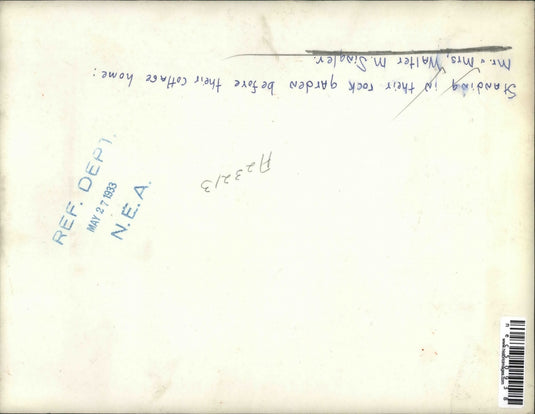 Standing in their rock garden before their cottage home:
Mr. & Mrs. Walter M. Singler.
A23213
REF. DEPT.
MAY 27 1933
N.E.A.